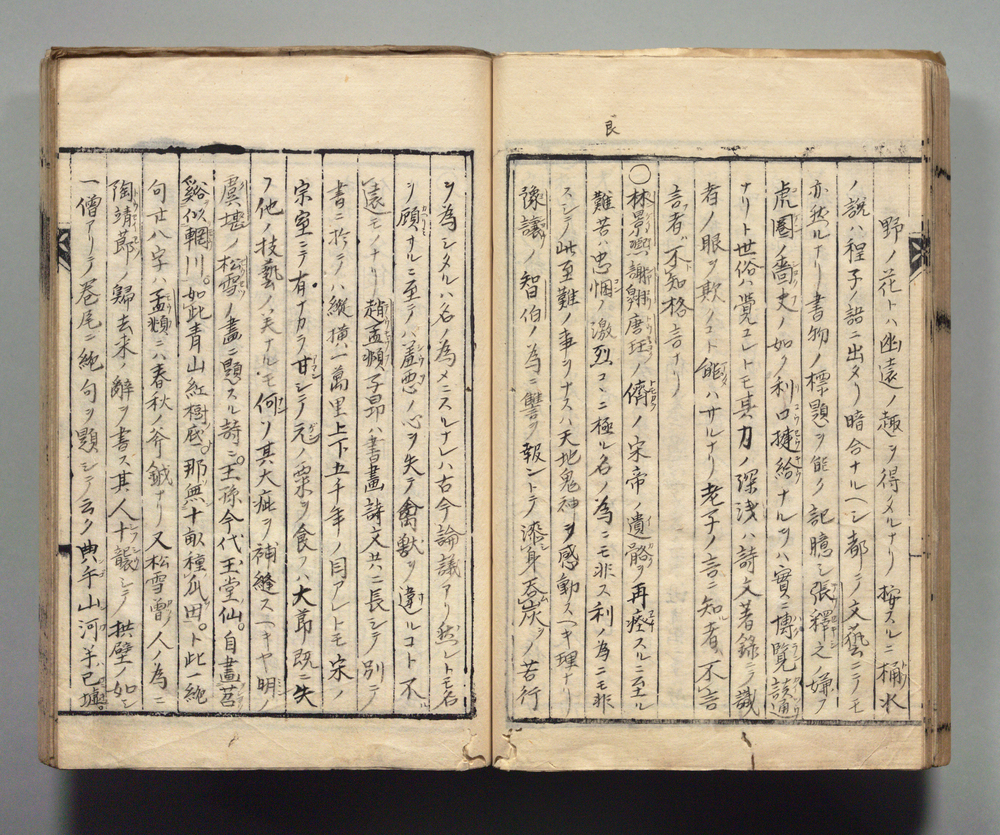 良
野ノ花トハ幽遠ノ趣ヲ得タルナリ 按スルニ桶水
ノ説ハ程子ノ語ニ出タリ暗合ナルヘシ都テ文藝ニテモ
亦然ルナリ 書物ノ標題ヲ能ク記臆シ張釋之ノ嫌フ
虎圏ノ嗇史ノ如ク利口捷給ナルヲハ實ニ博覧該通
ナリト世俗ハ覺ユレトモ其力ノ深浅ハ詩文著錄ニテ識
者ノ眼ヲ欺ノコト能ハサルナリ老子ノ言知者不言
言者不知格言ナリ
〇林景熙謝翺唐珏ノ儕ノ宋帝ノ遺骼ヲ再瘞スルニ至ル
難苦ハ忠悃激烈コヽニ極ル名ノ為ニモ非ス利ノ為ニモ非
スシテ此至難ノ事ヲナスハ天地鬼神ヲ感動スヘキ理ナリ
豫讓ノ智伯ノ為ニ讐ヲ報ントテ漆身吞炭ノ苦行
ヲ為シタルハ名ノ為メニスルナレハ古今論議アリ然レトモ名
ヲ顧サルニ至テハ羞悪ノ心ヲ失テ禽獣ヲ違ルコト不
遠モノナリ 趙孟頫子昂ハ書畫詩文共ニ長シテ別テ
書ニ於テハ縱横一萬里上下五千年ノ目アレトモ宋ノ
宗室ニテ有ナカラ甘シテ元ノ粟ヲ食ノハ大節既ニ失
フ他ノ技藝ノ美ナルモ何ソ其大疵ヲ補縫スヘキヤ明ノ
虞堪ノ松雪ノ畫ニ題スル詩ニ王孫今代玉堂仙。自畫苕
谿似輞川。如此青山紅樹底。那無十畝種瓜田。ト此一絶
句廿八字ハ孟頫ニハ春秋ノ斧鉞ナリ又松雪曽人ノ為ニ
陶靖節ノ歸去来ノ辭ヲ書ス其人十襲シテ拱璧ノ如シ
一僧アリテ巻尾ニ絶句ヲ題シテ云ク典午山河半已墟。